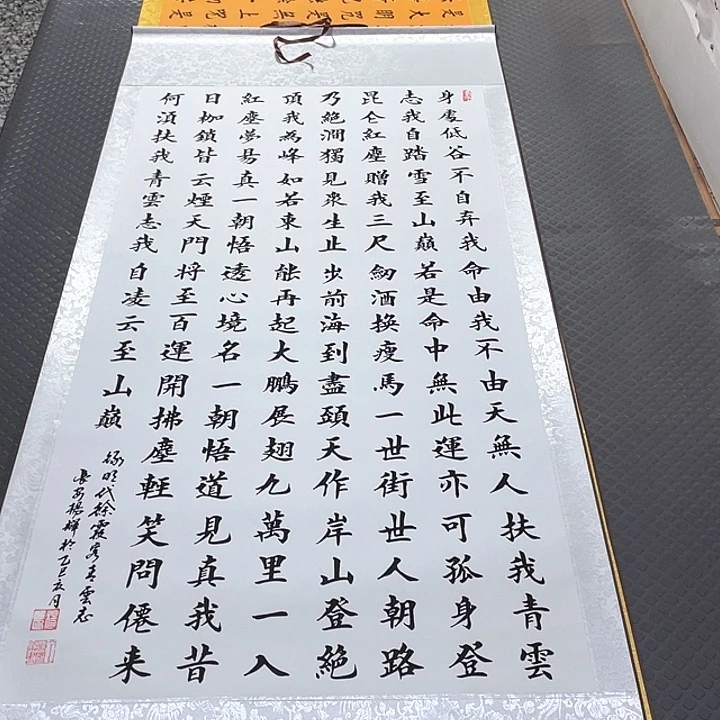 身處低谷不自弃我命由我不由天無人扶我青雲
志我自踏雪至山巔若是命中無此運亦可孤身登
昆仑紅塵贈我三尺劒酒換瘦馬一世街世人朝路
乃絕澗獨見眾生止步前海到盡頭天作岸山登絕
頂我為峰如若東山能再起大鵬展翅九萬里一入
紅塵夢易真一朝悟透心境名一朝悟道見真我昔
日枷鎖皆云煙天門将至百運開拂塵輕笑問僊来
何須扶我青雲志我自凌云至山巔
錄明代徐霞客青雲志
長安楊輝於乙巳夏月